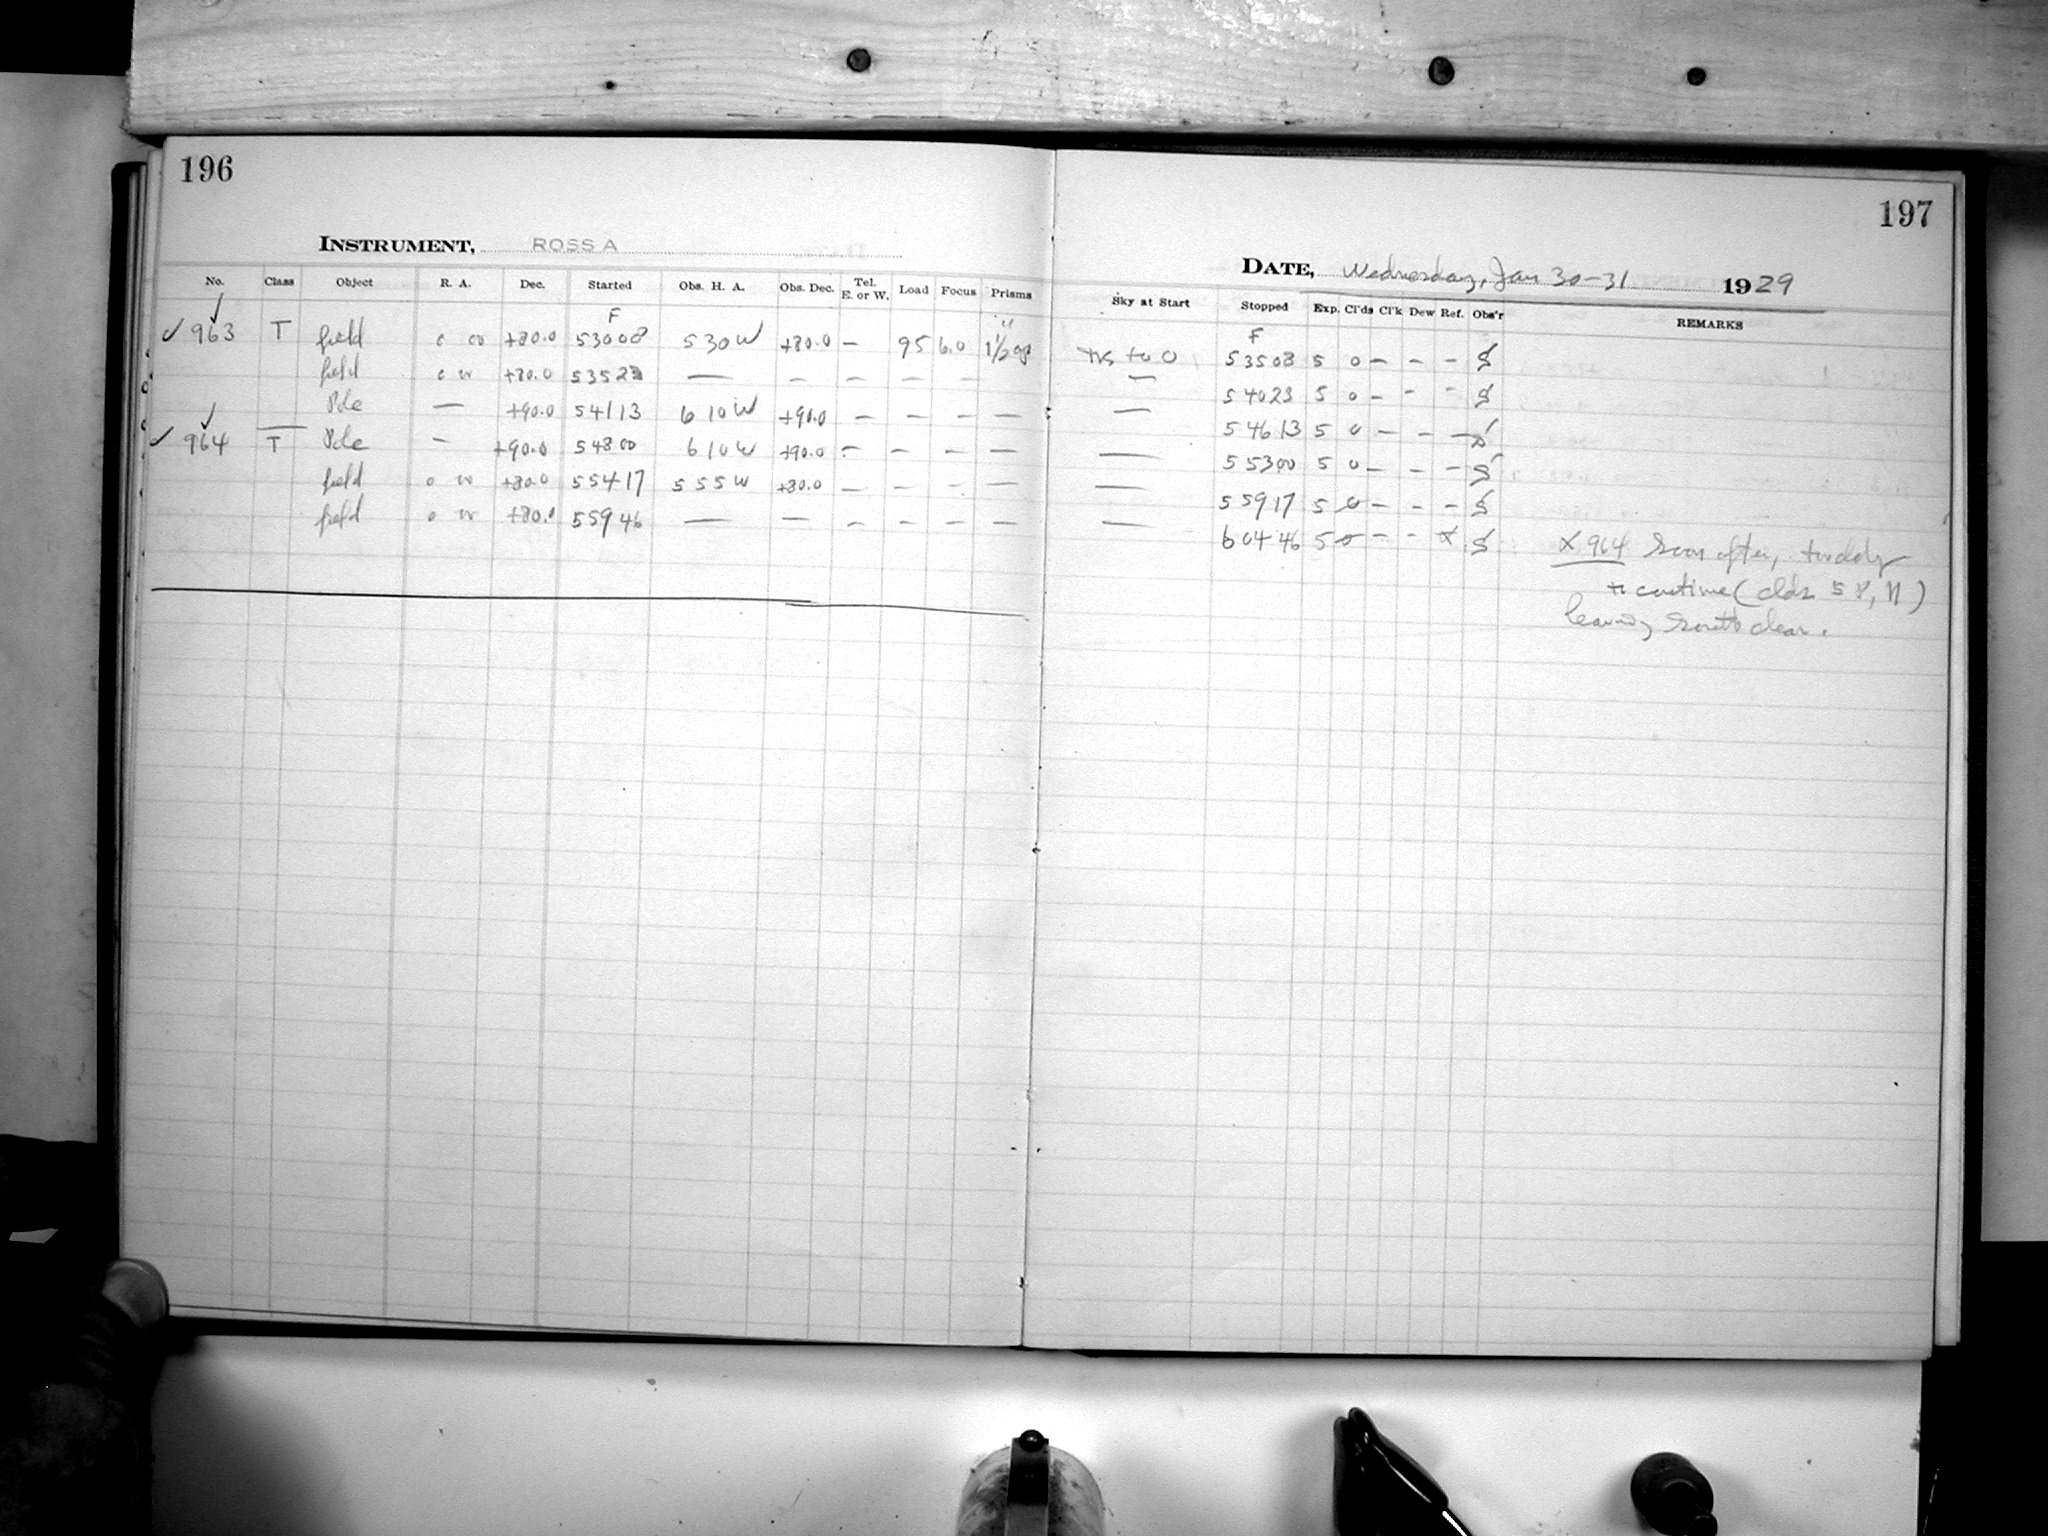 196
INSTRUMENT, ROSS A
No. Class Object R. A. Dec. Started Obs. H. A. Obs. Dec. Tel. E. or W. Load Focus Prisms
F
✓ 963 T field 0 00 +80.0 53008 530W +80.0 — 95 6.0
field 0 00 +80.0 5352 — — — — —
Pole — +90.0 54113 610W +90.0 — — — —
✓ 964 T Pole — +90.0 54800 610W +90.0 — — — —
field 0 00 +80.0 55417 555W +80.0 — — — —
field 0 00 +80.0 55946 — — — — — —
197
DATE, Wednesday, Jan 30-31 1929
Sky at Start Stopped Exp. Cl'ds Cl'k Dew Ref. Obs'r REMARKS
F
to 0 53508 5 0 — — — S
— 54023 5 0 — — — S
— 54613 5 0 — — — S
— 55300 5 0 — — — S
— 55917 5 0 — — — S
— 60446 5 0 — — X S X 964 Soon after, too cldy
to continue (clds 5 P, N)
leaving South clear.